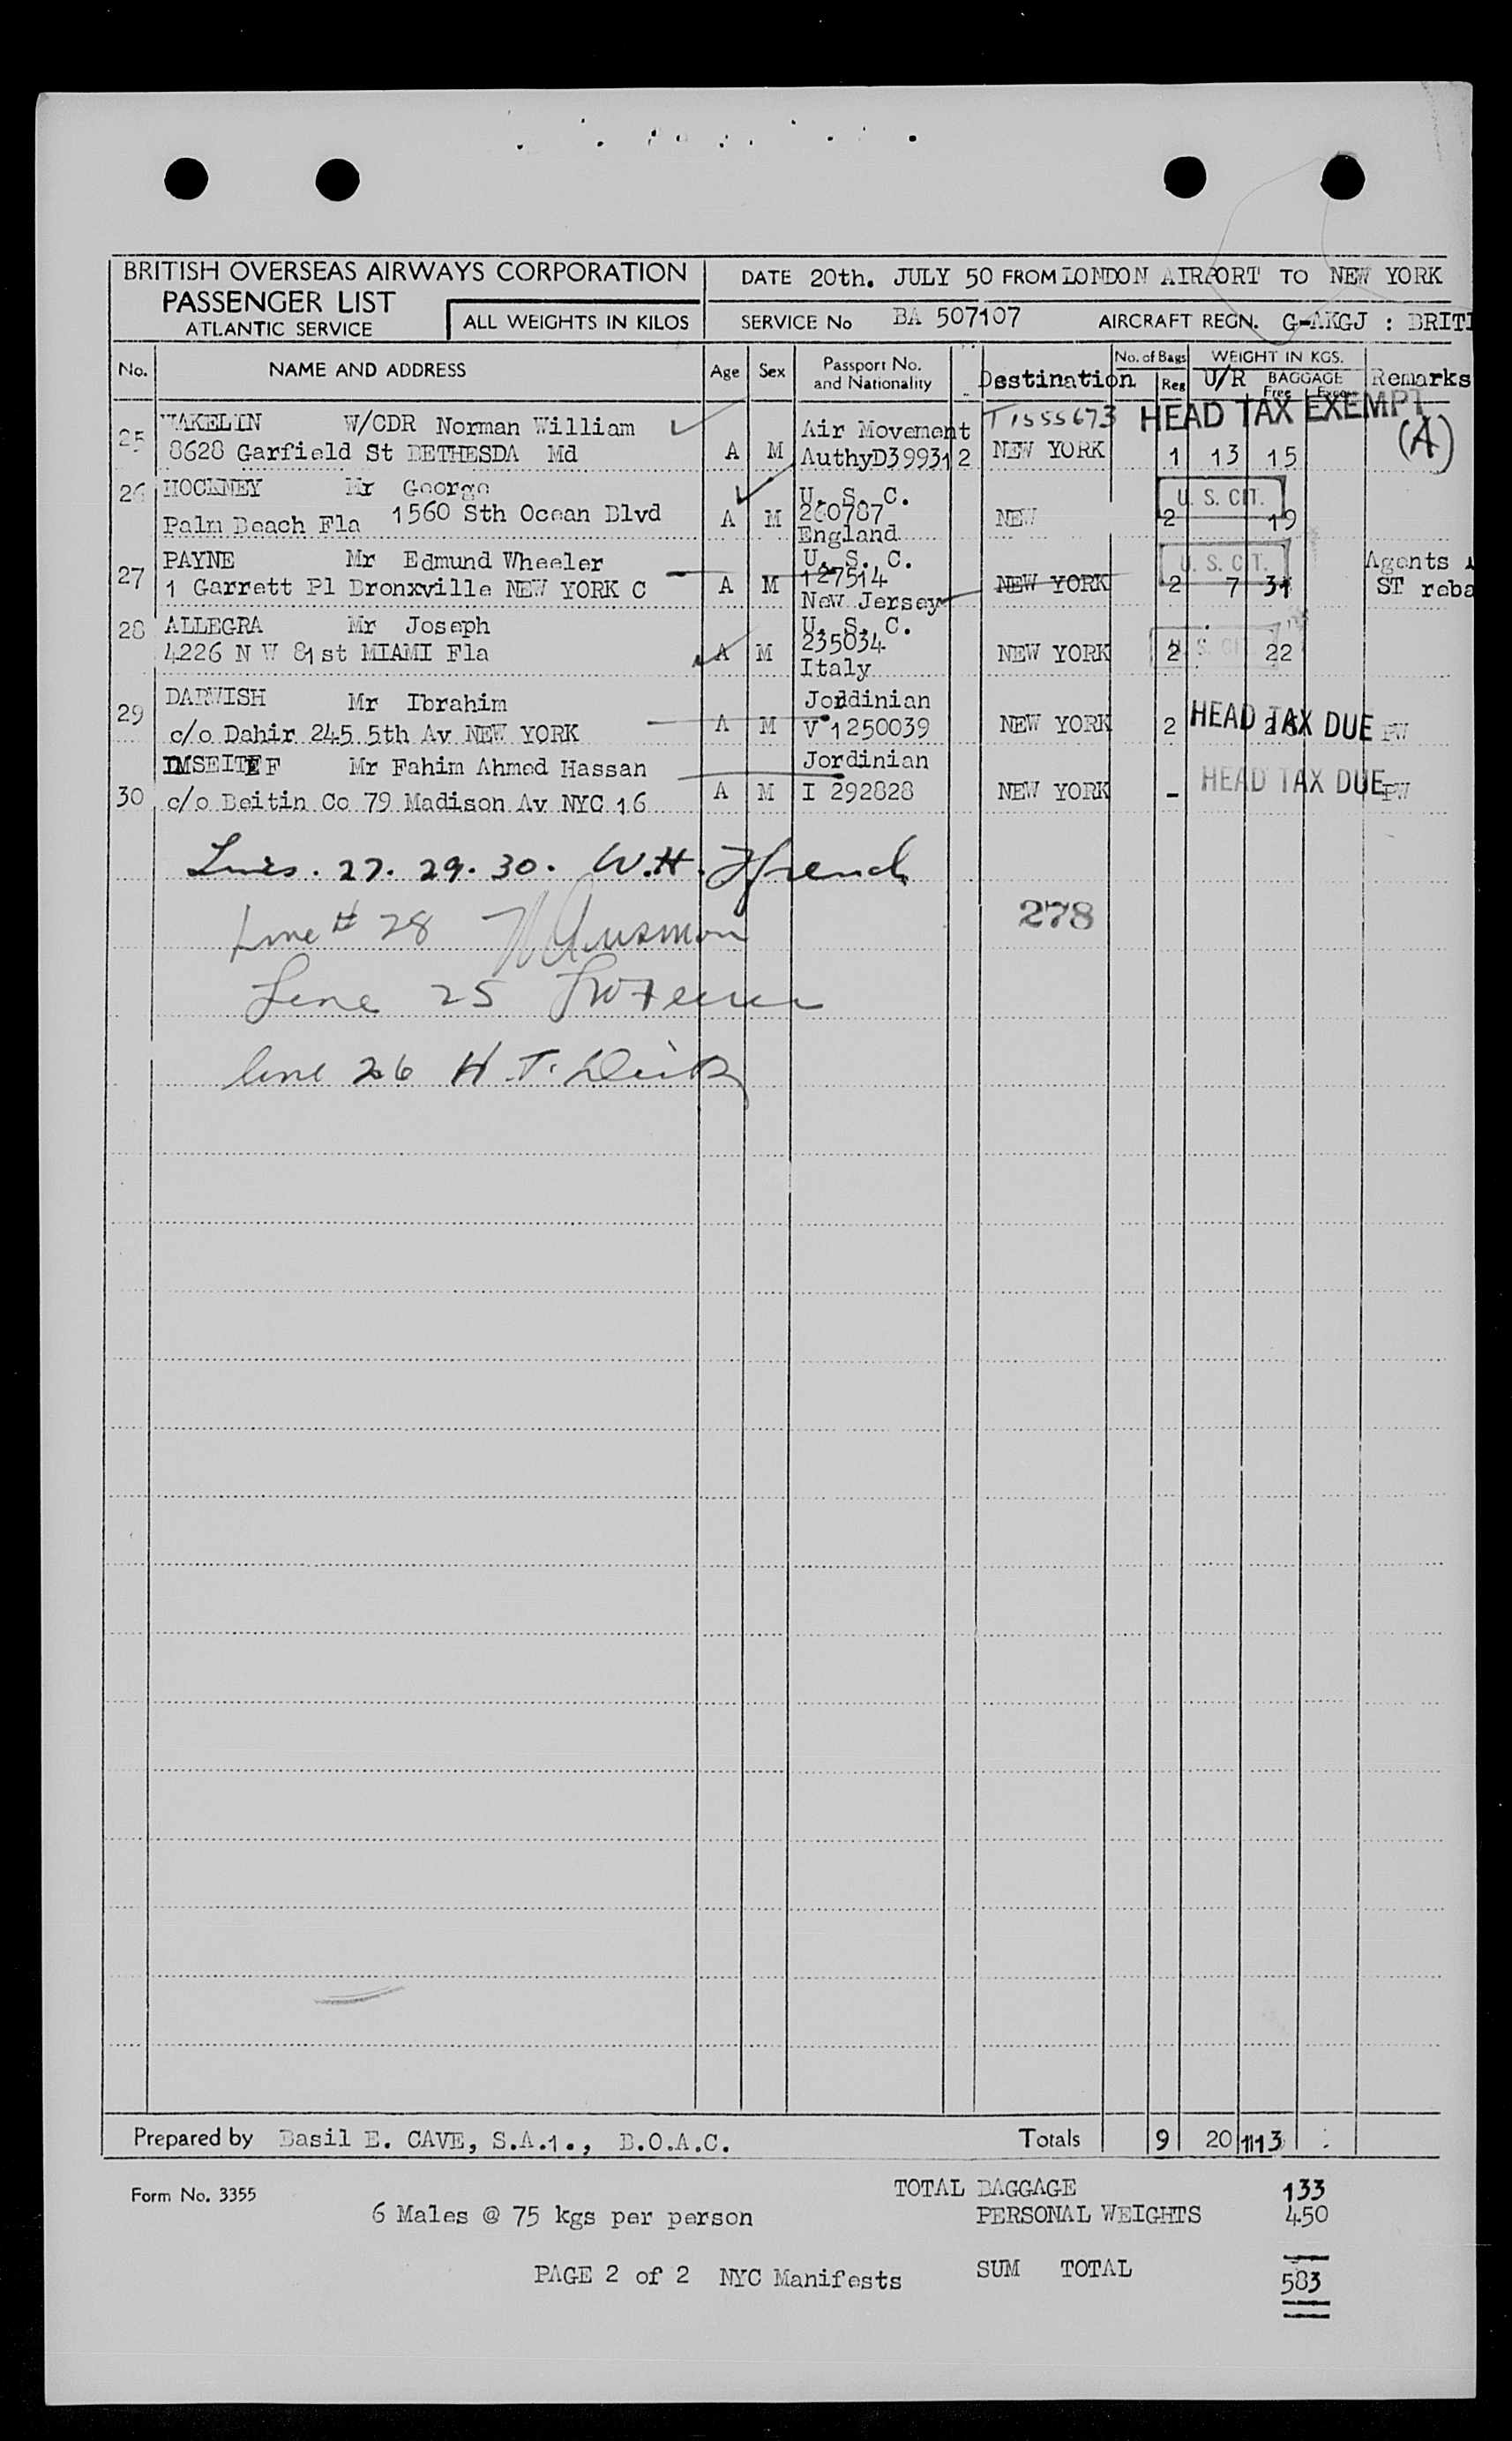 BRITISH OVERSEAS AIRWAYS CORPORATION
PASSENGER LIST
ATLANTIC SERVICE
ALL WEIGHTS IN KILOS
DATE 20th. JULY 50 FROM LONDON AIRPORT TO NEW YORK
SERVICE No BA 507107 AIRCRAFT REGN. G-AKGJ : BRITI
No. NAME AND ADDRESS Age Sex Passport No. and Nationality Destination No. of Bags Reg WEIGHT IN KGS. U/R BAGGAGE Free Excess Remarks
T1555673 HEAD TAX EXEMPT
(A)
25 WAKELIN W/CDR Norman William Air Movement
8628 Garfield St BETHESDA Md A M AuthyD399312 NEW YORK 1 13 15
26 HOCKNEY Mr George U. S. C. U. S. CIT.
Palm Beach Fla 1560 Sth Ocean Blvd A M 260787 NEW 2 19
England
27 PAYNE Mr Edmund Wheeler U. S. C. U. S. CIT. Agents
1 Garrett Pl Bronxville NEW YORK C A M 127514 NEW YORK 2 7 31 ST reba
New Jersey
28 ALLEGRA Mr Joseph U. S. C. U. S. CIT.
4226 N W 81st MIAMI Fla A M 235034 NEW YORK 2 22
Italy
29 DARWISH Mr Ibrahim Jordinian
c/o Dahir 245 5th Av NEW YORK A M V 1250039 NEW YORK 2 HEAD TAX DUE PW
IMSEITEF Mr Fahim Ahmed Hassan Jordinian
30 c/o Beitin Co 79 Madison Av NYC 16 A M I 292828 NEW YORK - HEAD TAX DUE PW
Lines. 27. 29. 30. W.H. Ffrench
278
Line # 28
Line 25
line 26 H.T.
Prepared by Basil E. CAVE, S.A.1., B.O.A.C. Totals 9 20 113
Form No. 3355
TOTAL BAGGAGE 133
6 Males @ 75 kgs per person PERSONAL WEIGHTS 450
PAGE 2 of 2 NYC Manifests SUM TOTAL 583